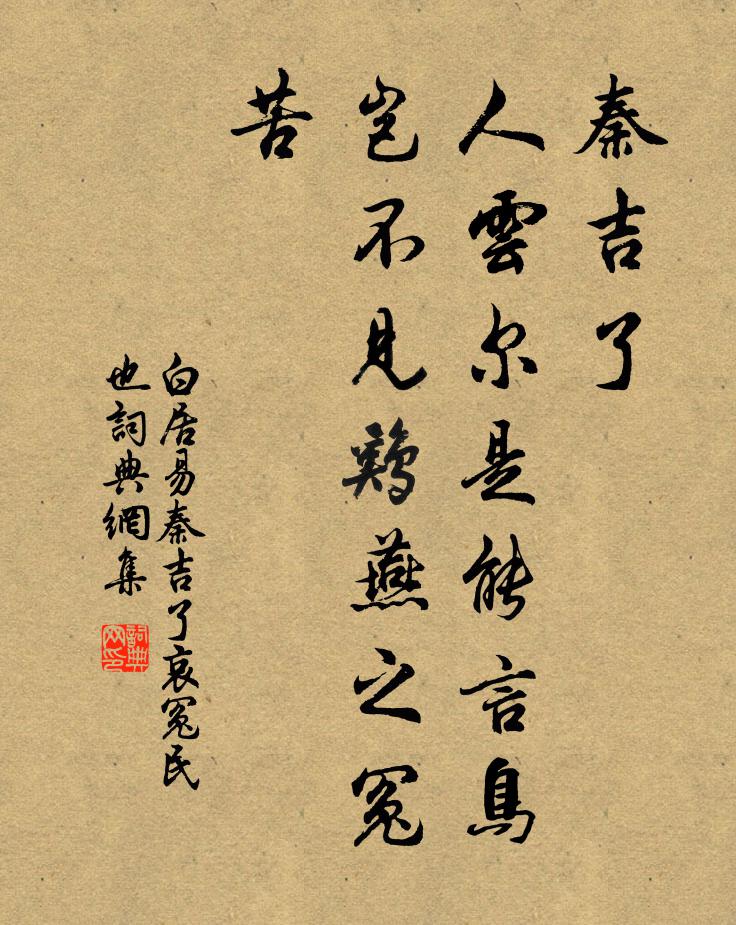 秦吉了
人雲尔是能言鳥
豈不見鷄燕之冤
苦
白居易秦吉了哀冤民
也詞典網集
詞典
网印